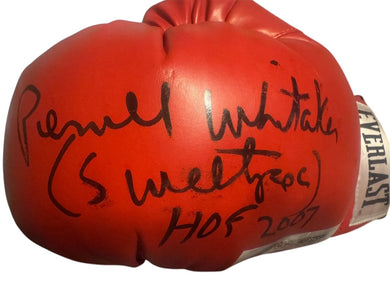 Pernell Whitaker
(Sweetpea)
HOF 2007
EVERLAST